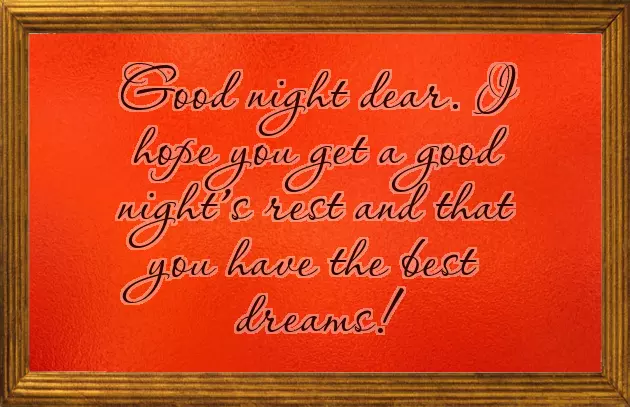 Good night dear. I
hope you get a good
night's rest and that
you have the best
dreams!